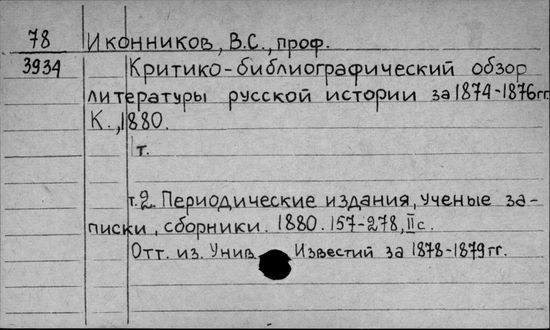 78 Иконников, В.С., проф.
3934 Критико-библиографический обзор
литературы русской истории за 1874-1876гг.
К., 1880.
т.
т.2. Периодические издания, ученые за-
писки, сборники. 1880. 157-278, II с.
Отт. из. Унив. Известий за 1878-1879 гг.